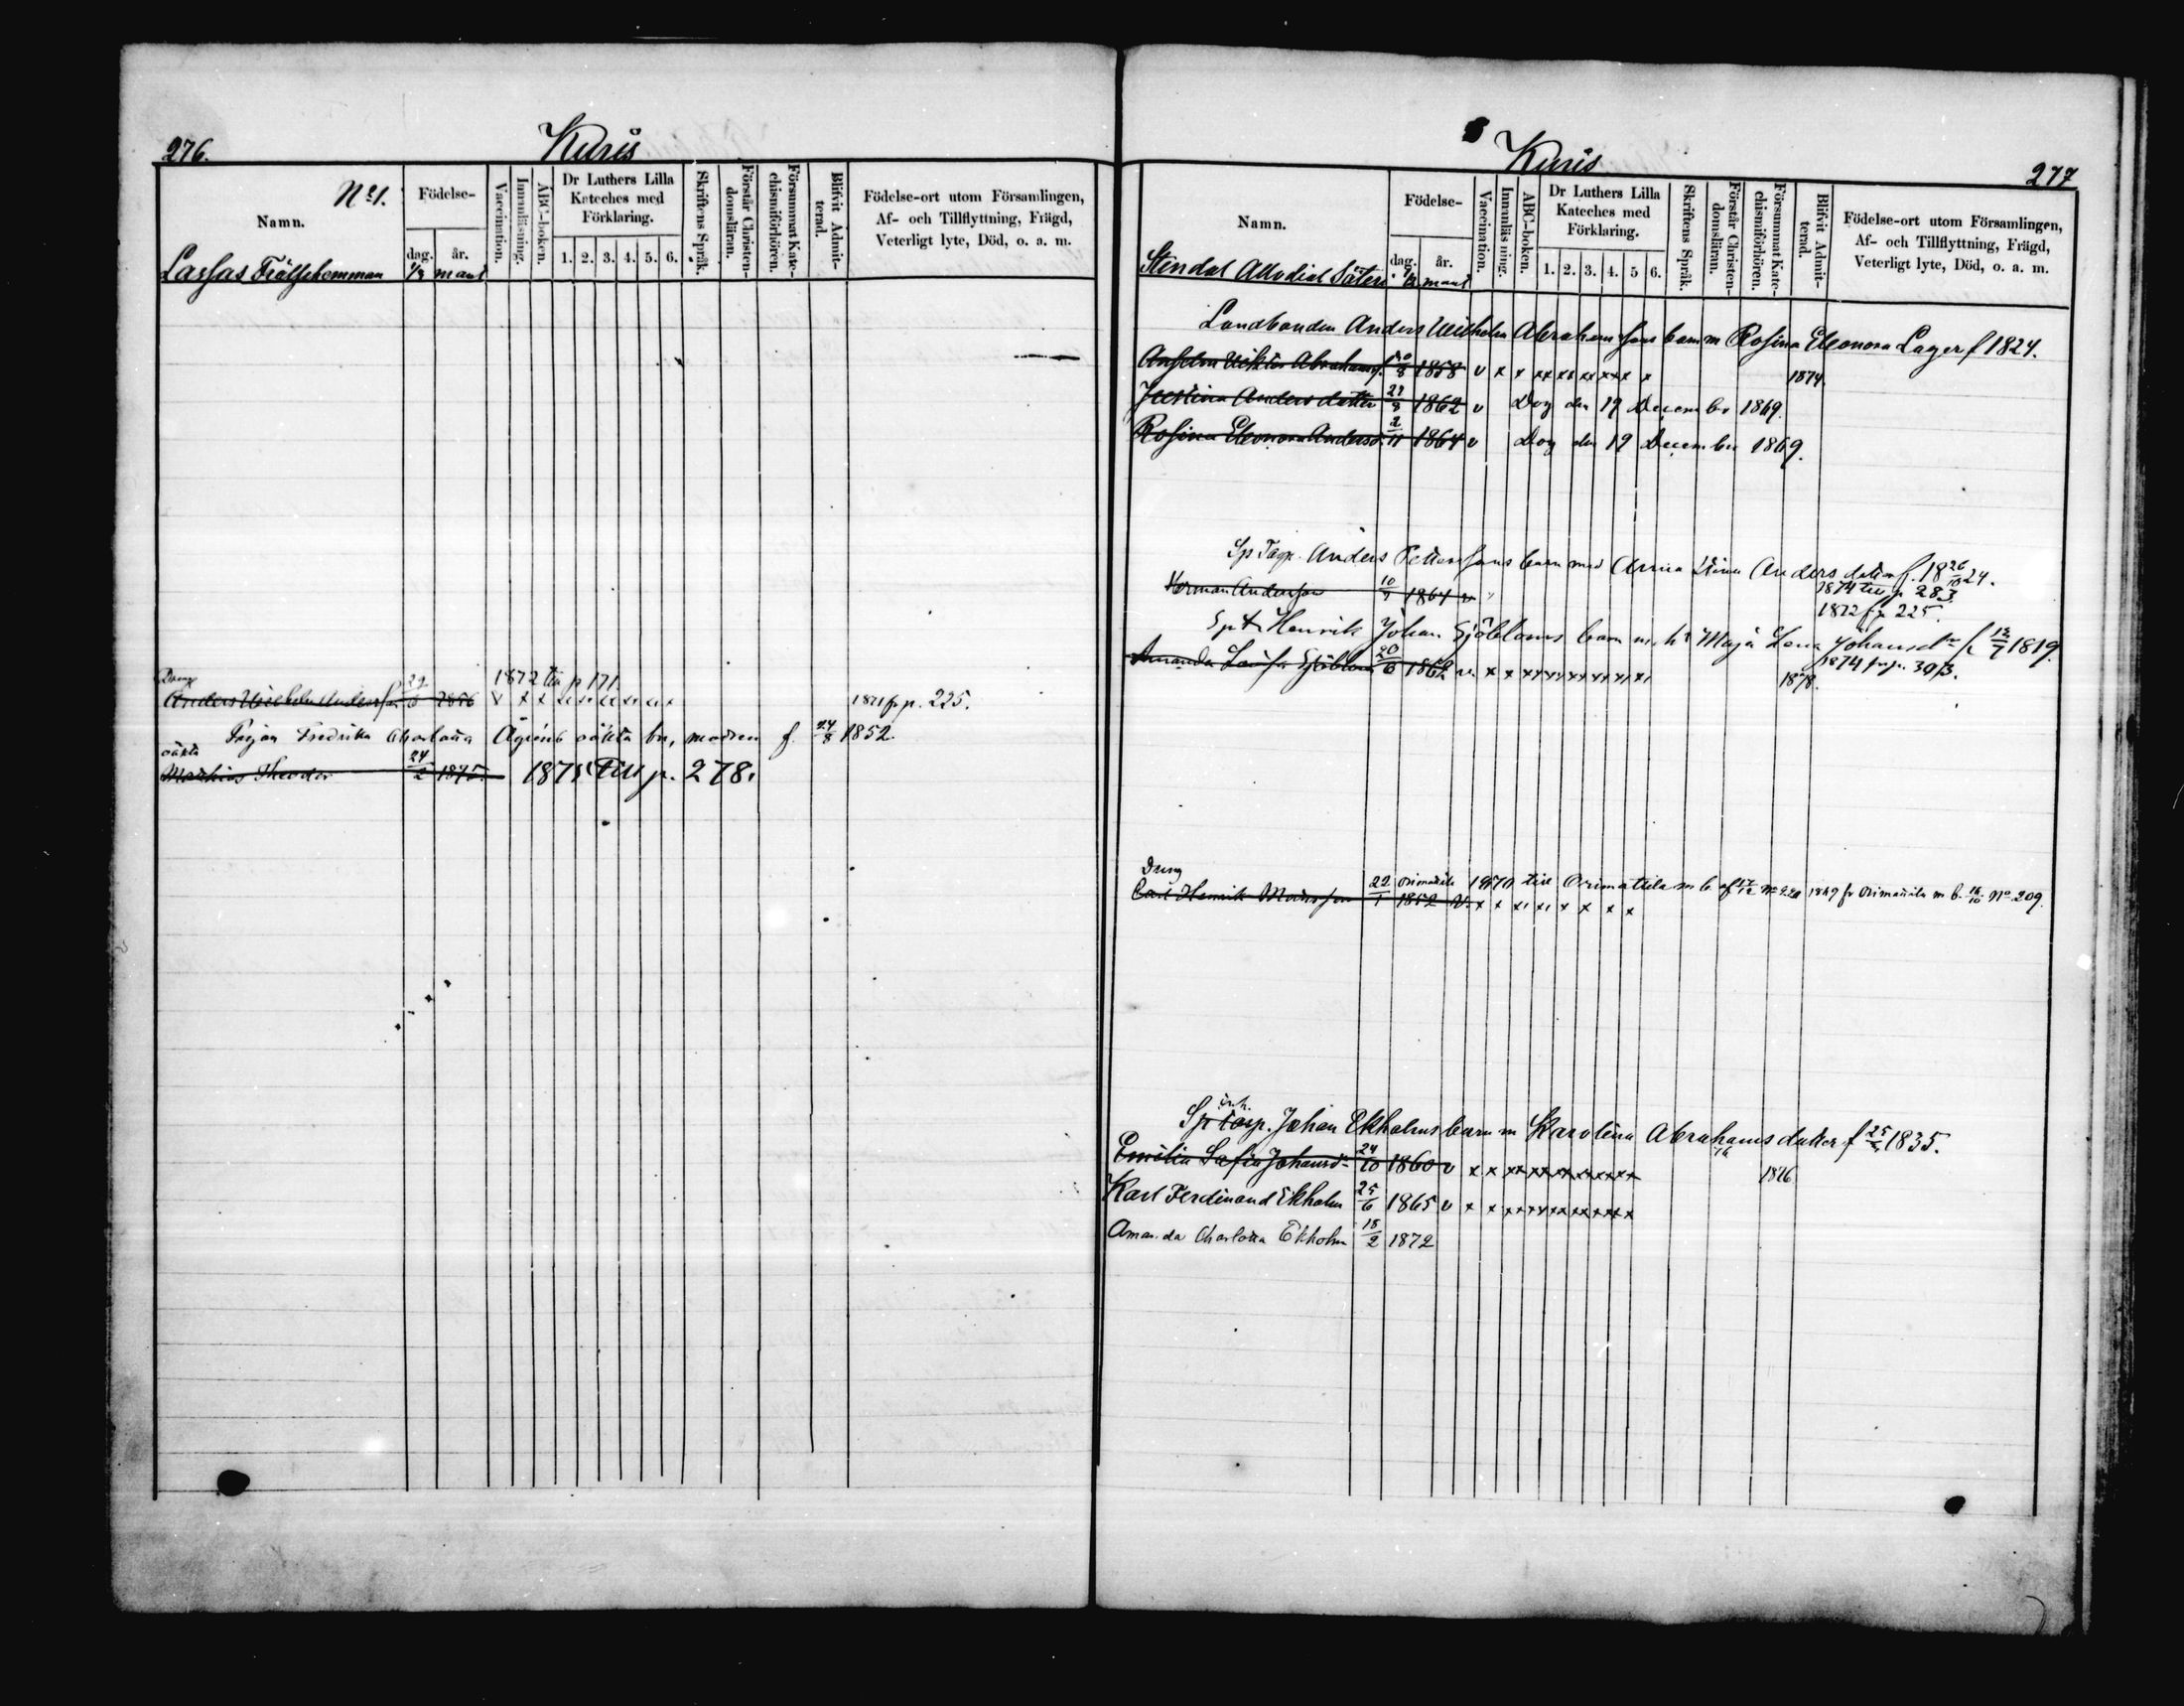 276.
Kuris
Nº 1.
Namn.
Födelse-
dag. år.
Vaccination.
Innanläsning.
ABC-boken.
Dr Luthers Lilla Kateches med Förklaring.
1. 2. 3. 4. 5. 6.
Skriftens Språk.
Förstår Christendomsläran.
Försummat Katechismiförhören.
Blifvit Admitterad.
Födelse-ort utom Församlingen, Af- och Tillflyttning, Frägd, Veterligt lyte, Död, o. a. m.
Lassas Frälsehemman 1/3 mant
Dräng 1872 till p 171.
Anders Wilhelm Andersson 29/ 1856 v x x 1871 fr p. 225.
Pigan Fredrika Charlotta Ågrens oäkta bn, modren f. 24/8 1852.
oäkta
Mathias Theodor 24/2 1875. 1875 till p. 278.
Kuris
277
Namn.
Födelse-
dag. år.
Vaccination.
Innanläsning.
ABC-boken.
Dr Luthers Lilla Kateches med Förklaring.
1. 2. 3. 4. 5 6.
Skriftens Språk.
Förstår Christendomsläran.
Försummat Katechismiförhören.
Blifvit Admitterad.
Födelse-ort utom Församlingen, Af- och Tillflyttning, Frägd, Veterligt lyte, Död, o. a. m.
Stendal Allodial Säteri mant
Landbonden Anders Wilhelm Abrahamsons barn m Rosina Eleonora Lager f 1824.
Anselm Viktor Abrahams. 1858 v x x xx xx xx xxx x 1874.
Justina Andersdotter 27/8 1862 v Dog den 19 December 1869.
Rosina Eleonora Andersd. 2/11 1864 v Dog den 19 December 1869.
Sp Torp. Anders Pettersons barn med Anna Stina Andersdotter f. 18 26/10 24.
1874 till p 283.
Herman Andersson 1861 v
1872 fr p 225.
Henrik Johan Sjöbloms barn m. h. Maja Lena Johansdr f 1819.
1874 fr p. 303.
Amanda Lovisa Sjöblom 20/6 1862 v. x x xx xx xx xx xx xx 1878.
Dräng
Carl Henrik Matsson 22/1 Orimattila 1852 v. x x x x x x x x 1870 till Orimattila m b. af 1869 fr Orimattila m b. 16/10 Nº 209.
inh.
Sp Torp. Johan Ekholms barn m Karolina Abrahamsdotter f 1835.
Emilia Sofia Johansdr 24/10 1860 v x x xx xx xx xx xx xx 1876
Karl Ferdinand Ekholm 25/6 1865 v x x xx xx xx xx xx xx
Amanda Charlotta Ekholm 18/2 1872